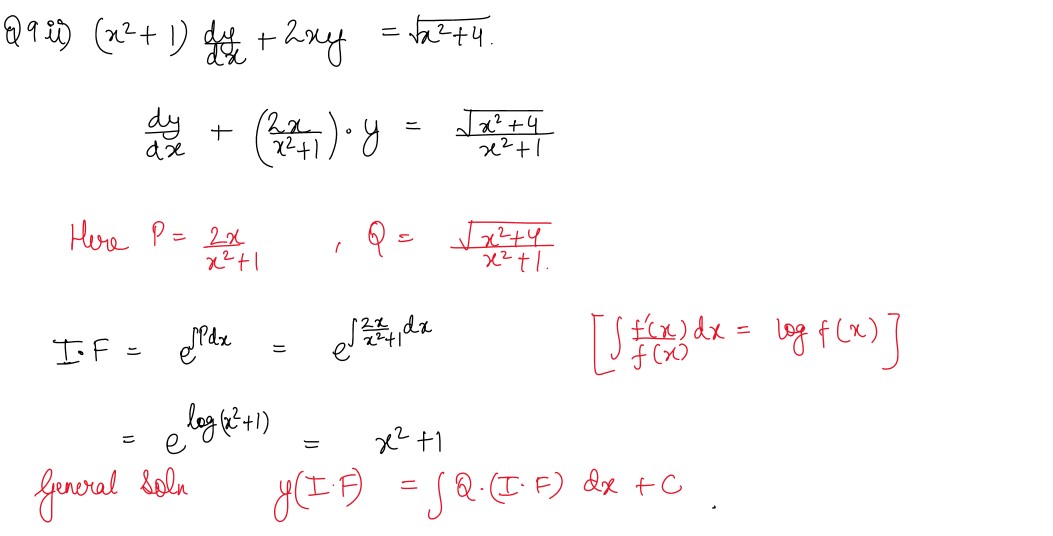 Q9 ii) (x²+1) dy/dx + 2xy = √(x²+4).
dy/dx + (2x/(x²+1))·y = √(x²+4)/(x²+1)
Here P = 2x/(x²+1) , Q = √(x²+4)/(x²+1).
I·F = e^(∫Pdx) = e^(∫ 2x/(x²+1) dx) [∫ f'(x)/f(x) dx = log f(x)]
= e^(log(x²+1)) = x²+1
General Soln y(I·F) = ∫Q·(I·F) dx + C